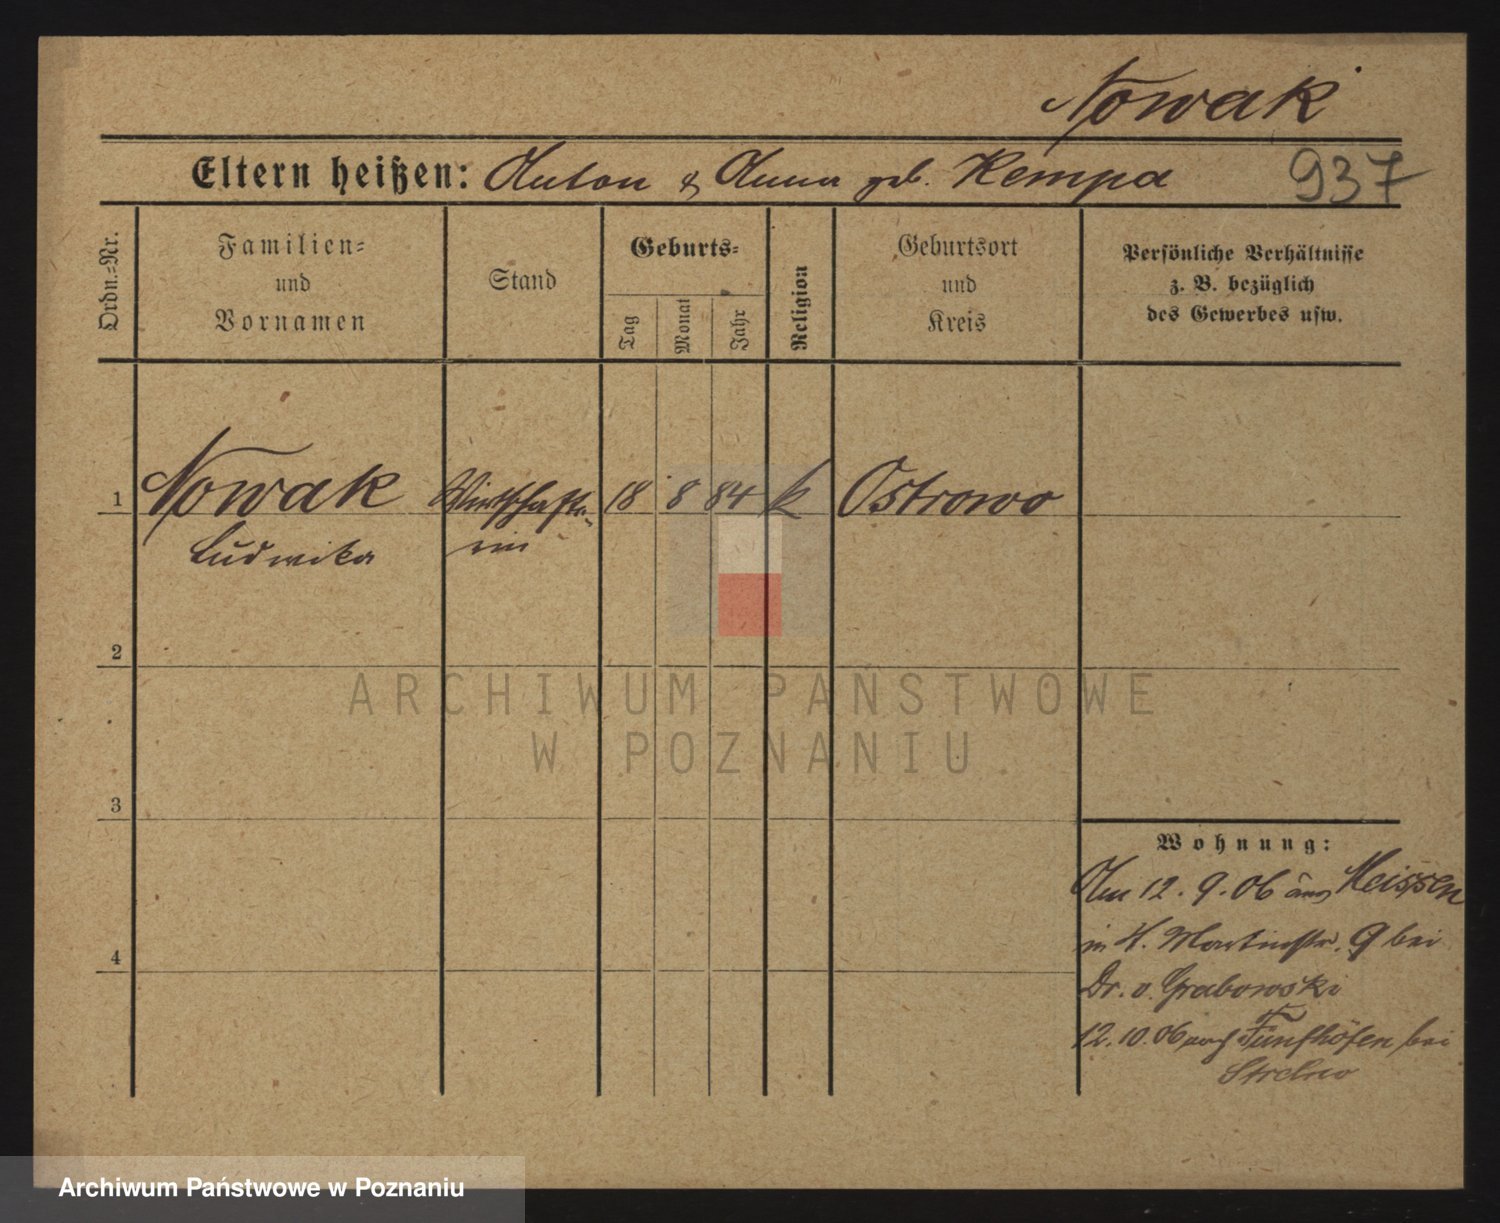 Nowak
Eltern heißen: Anton & Anna geb. Kempa 937
Ordn.-Nr.
Familien-
und
Vornamen
Stand
Geburts-
Tag
Monat
Jahr
Religion
Geburtsort
und
Kreis
Persönliche Verhältnisse
z. B. bezüglich
des Gewerbes usw.
1 Nowak Wirthschafte- 18 8 84 k Ostrowo
Ludwika rin
2
ARCHIWUM PAŃSTWOWE
W POZNANIU
3
Wohnung:
Am 12. 9. 06 aus Meissen
in H. Martinstr. 9 bei
4
Dr. v. Grabowski
12. 10. 06 nach Fünfhöfen bei
Strelno
Archiwum Państwowe w Poznaniu